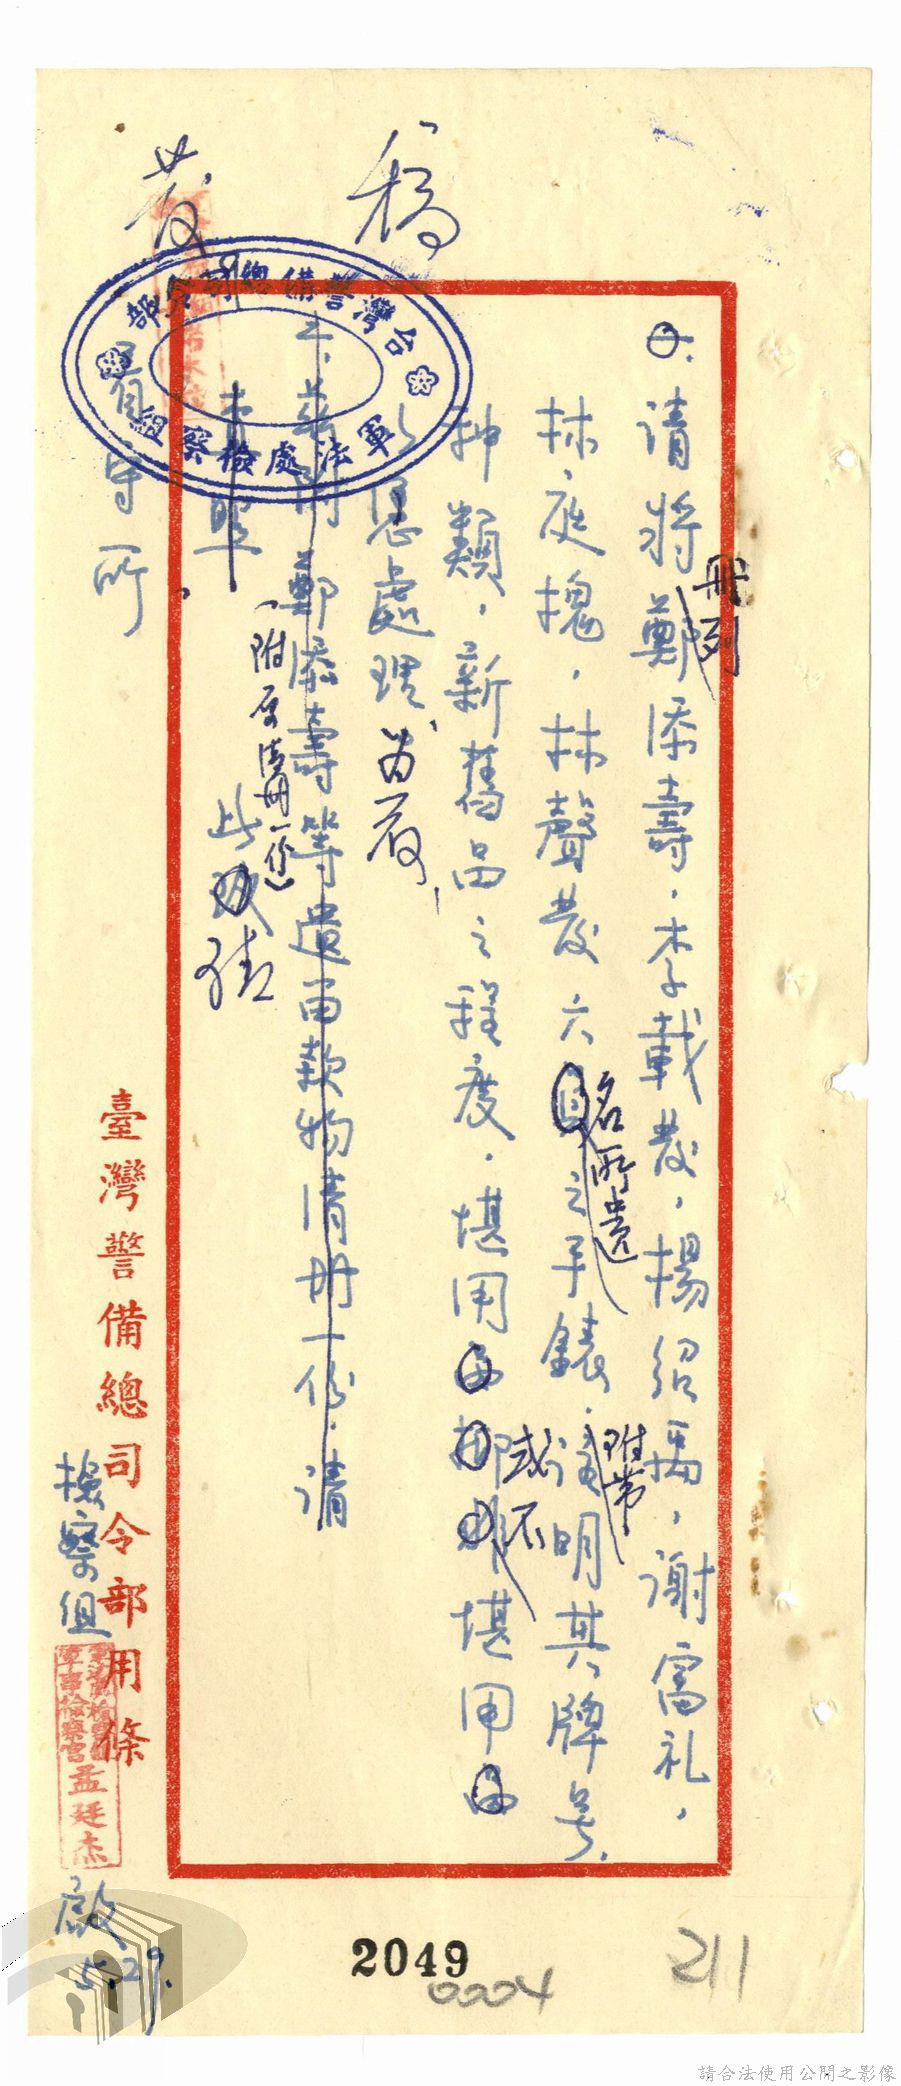 稿
發
一、請將冊列鄭添壽、李載發、楊紹禹、謝富礼、
林庭槐、林聲發六員名所遺之手錶、附帶註明其牌号、
种類、新舊品之程度、堪用品抑或不堪用品
以憑處理為荷
二、茲附鄭添壽等遺留款物清册一份、請
查照
(附原清册一份)
此致
看守所
臺灣警備總司令部用條
檢察組
孟廷杰
啟
5.29.
台灣警備總司令部
軍法處檢察組
2049
0004
211
請合法使用公開之影像